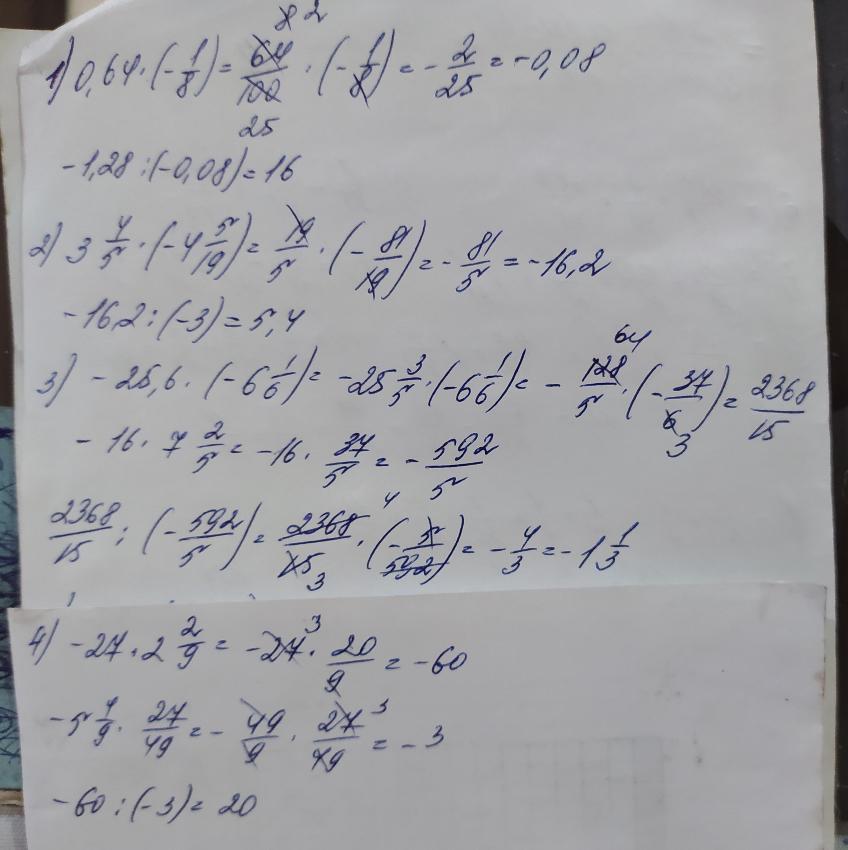 8 2
1) 0,64 · (-1/8) = 64/100 · (-1/8) = -2/25 = -0,08
25
-1,28 : (-0,08) = 16
2) 3 4/5 · (-4 5/19) = 19/5 · (-81/19) = -81/5 = -16,2
-16,2 : (-3) = 5,4
64
3) -25,6 · (-6 1/6) = -25 3/5 · (-6 1/6) = -128/5 · (-37/6) = 2368/15
3
-16 · 7 2/5 = -16 · 37/5 = -592/5
4
2368/15 : (-592/5) = 2368/15 · (-5/592) = -4/3 = -1 1/3
3
3
4) -27 · 2 2/9 = -27 · 20/9 = -60
3
-5 4/9 · 27/49 = -49/9 · 27/49 = -3
-60 : (-3) = 20